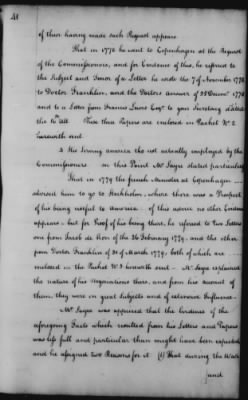 41
of their having made such Request appears.
That in 1778 he went to Copenhagen at the Request
of the Commissioners, and for Evidence of this, he referred to
the Subject and Tenor of a Letter he wrote the 7 of November 1778
to Doctor Franklin, and the Doctors answer of 25 Decemr 1778
and to a Letter from Francis Dana Esqr to
the 10 These three Papers are enclosed in Packet No 2
herewith sent
3 His serving America tho not actually employed by the
Commissioners in this Point Mr Sayre stated particulars
That in 1779 the french Minister at Copenhagen
advised him to go to Stockholm, where there was a Prospect
of his being useful to America of this advice no other Evidence
appears, but for Proof of his being there, he referred to two Letters
one from Jacob de Ron of the 26 February 1779, and the other
from Doctor Franklin of 31 of March 1779, both of which are
enclosed in the Packet No 3 herewith sent Mr Sayre explained
the nature of his Negociations there, and from his account of
them, they were on great Subjects and of extensive Influence
Mr Sayre was apprised that the Evidence of the
aforegoing Facts which resulted from his Letters and Papers
was less full and particular than might have been expected
and he assigned two Reasons for it (1) That during the
and